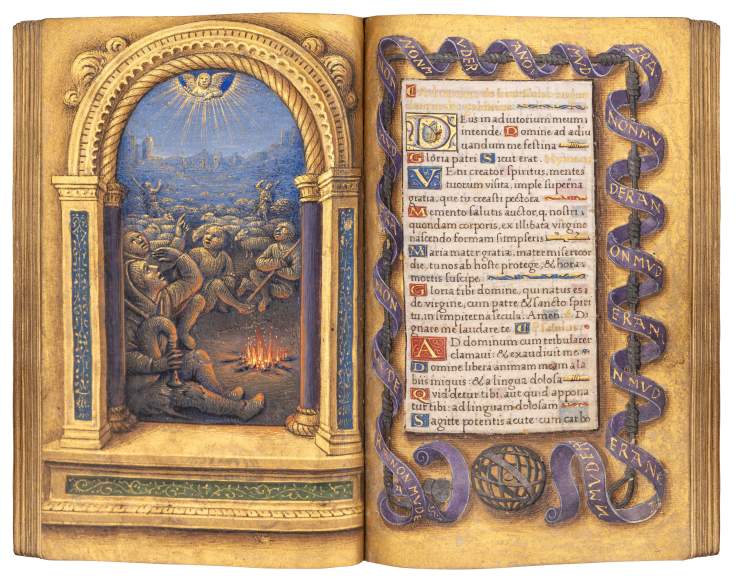 NONM VDER ANO MVD ERA
NONMV
DERAN
ONMVD
ERAN
Deus in adiutorium meum
intende. Domine ad adiu
uandum me festina
Gloria patri Sicut erat.
Veni creator spiritus, mentes
tuorum visita, imple superna
gratia, que tu creasti pectora
Memento salutis auctor, q, nostri
quondam corporis, ex illibata virgine
nascendo formam sumpseris
Maria mater gratiæ, mater misericor
die, tu nos ab hoste protege, & hora
mortis suscipe.
Gloria tibi domine, qui natus es
de virgine, cum patre & sancto spiri
tu, in sempiterna secula. Amen. Di
gnare me laudare te.
Ad dominum cum tribularer
clamaui: & exaudiuit me
Domine libera animam meam a la
biis iniquis: & a lingua dolosa
Quid detur tibi, aut quid appona
tur tibi: ad linguam dolosam
Sagitte potentis acute: cum carbo